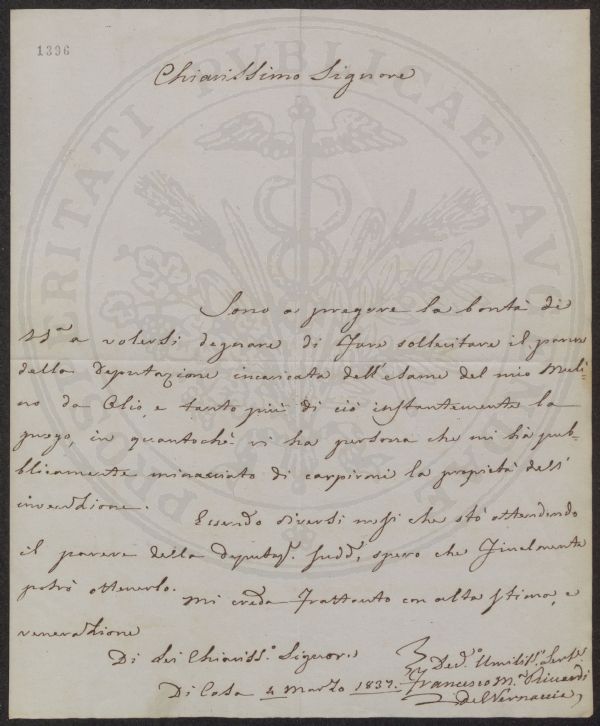 1396
PROSPERITATI PUBLICAE AUGENDAE
Chiarissimo Signore
Sono a pregare la bontà di
SSa a volersi degnare di fare sollecitare il parere
della Deputazione incaricata dell'esame del mio Muli=
no da Olio, e tanto più di ciò instantemente la
prego, in quantochè vi ha persona che mi ha pub=
blicamente minacciato di carpirmi la proprietà dell'
invenzione.
Essendo diversi mesi che stò attendendo
il parere della Deputaze. sudda, spero che finalmente
potrò ottenerlo.
Mi creda frattanto con alta stima, e
venerazione
Di Lei Chiariss.o Signore
Di Casa 4 Marzo 1837.
Dev.o Umiliss.o Serv.e
Francesco M.a Riccardi
del Vernaccia